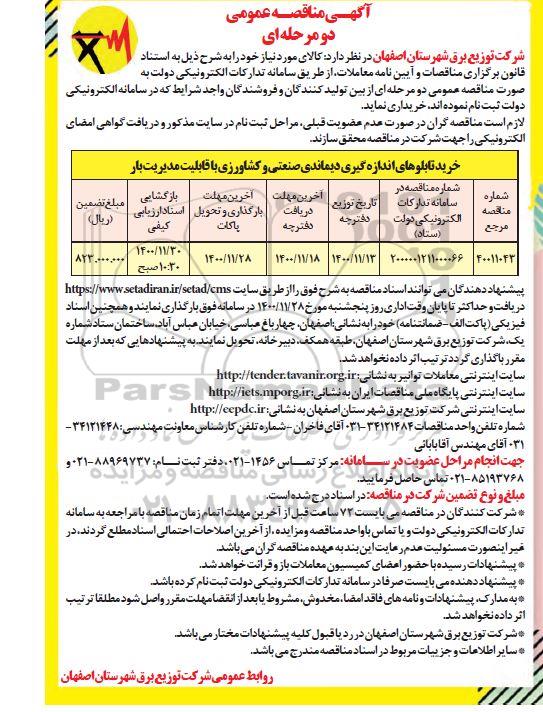 آگهـی مناقصـه عمومی
دو مرحله ای
شرکت توزیع برق شهرستان اصفهان در نظر دارد: کالای مورد نیاز خود را به شرح ذیل به استناد
قانون برگزاری مناقصات و آیین نامه معاملات، از طریق سامانه تدارکات الکترونیکی دولت به
صورت مناقصه عمومی دو مرحله ای از بین تولید کنندگان و فروشندگان واجد شرایط که در سامانه الکترونیکی
دولت ثبت نام نموده اند، خریداری نماید.
لازم است مناقصه گران در صورت عدم عضویت قبلی، مراحل ثبت نام در سایت مذکور و دریافت گواهی امضای
الکترونیکی را جهت شرکت در مناقصه محقق سازند.
خرید تابلوهای اندازه گیری دیماندی صنعتی و کشاورزی با قابلیت مدیریت بار
شماره مناقصه مرجع
شماره مناقصه در سامانه تدارکات الکترونیکی دولت (ستاد)
تاریخ توزیع دفترچه
آخرین مهلت دریافت دفترچه
آخرین مهلت بارگذاری و تحویل پاکات
بازگشایی اسناد ارزیابی کیفی
مبلغ تضمین (ریال)
۴۰۰۱۱۰۴۳
۲۰۰۰۰۰۱۲۱۱۰۰۰۰۶۶
۱۴۰۰/۱۱/۱۳
۱۴۰۰/۱۱/۱۸
۱۴۰۰/۱۱/۲۸
۱۴۰۰/۱۱/۳۰ ۱۰:۳۰ صبح
۸۲۳.۰۰۰.۰۰۰
پیشنهاد دهندگان می توانند اسناد مناقصه به شرح فوق را از طریق سایت https://www.setadiran.ir/setad/cms
دریافت و حداکثر تا پایان وقت اداری روز پنجشنبه مورخ ۱۴۰۰/۱۱/۲۸ در سامانه فوق بارگذاری نمایند و همچنین اسناد
فیزیکی (پاکت الف - ضمانتنامه) خود را به نشانی: اصفهان، چهارباغ عباسی، خیابان عباس آباد، ساختمان ستاد شماره
یک، شرکت توزیع برق شهرستان اصفهان، طبقه همکف، دبیرخانه، تحویل نمایند. به پیشنهادهایی که بعد از مهلت
مقرر بارگذاری گردد ترتیب اثر داده نخواهد شد.
سایت اینترنتی معاملات توانیر به نشانی: http://tender.tavanir.org.ir
سایت اینترنتی پایگاه ملی مناقصات ایران به نشانی: http://iets.mporg.ir
سایت اینترنتی شرکت توزیع برق شهرستان اصفهان به نشانی: http://eepdc.ir
شماره تلفن واحد مناقصات ۳۴۱۲۱۴۸۴-۰۳۱ آقای فاخران - شماره تلفن کارشناس معاونت مهندسی: ۳۴۱۲۱۴۴۸-
۰۳۱ آقای مهندس آقابابائی
جهت انجام مراحل عضویت در ســامانه: مرکز تمــاس ۱۴۵۶-۰۲۱، دفتر ثبت نــام: ۸۸۹۶۹۷۳۷-۰۲۱ و
۸۵۱۹۳۷۶۸-۰۲۱ تماس حاصل فرمایید.
مبلغ و نوع تضمین شرکت در مناقصه: در اسناد درج شده است.
*شرکت کنندگان در مناقصه می بایست ۷۲ ساعت قبل از آخرین مهلت اتمام زمان مناقصه با مراجعه به سامانه
تدارکات الکترونیکی دولت و یا تماس با واحد مناقصه ومزایده، از آخرین اصلاحات احتمالی اسناد مطلع گردند، در
غیر اینصورت مسئولیت عدم رعایت این بند به عهده مناقصه گران می باشد.
* پیشنهادات رسیده با حضور اعضای کمیسیون معاملات باز و قرائت خواهد شد.
* پیشنهاد دهنده می بایست صرفا در سامانه تدارکات الکترونیکی دولت ثبت نام کرده باشد.
*به مدارک، پیشنهادات و نامه های فاقد امضا، مخدوش، مشروط یا بعد از انقضا مهلت مقرر واصل شود مطلقا ترتیب
اثر داده نخواهد شد.
*شرکت توزیع برق شهرستان اصفهان در رد یا قبول کلیه پیشنهادات مختار می باشد.
* سایر اطلاعات و جزییات مربوط در اسناد مناقصه مندرج می باشد.
روابط عمومی شرکت توزیع برق شهرستان اصفهان